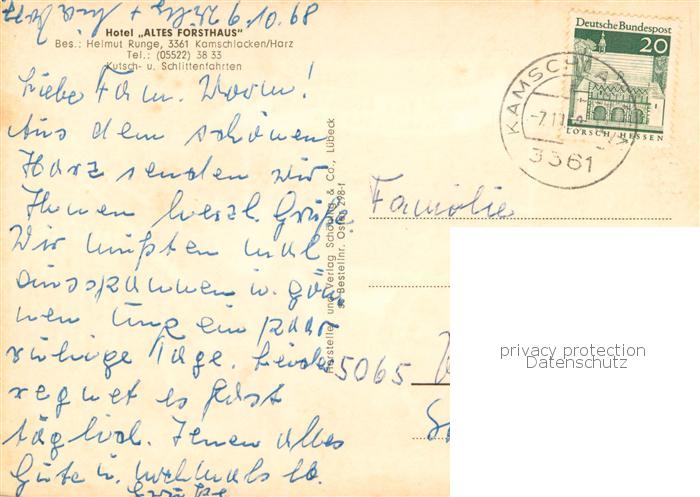 Hotel „ALTES FORSTHAUS"
Bes.: Helmut Runge, 3361 Kamschlacken/Harz
Tel.: (05522) 38 33
Kutsch- u. Schlittenfahrten
Liebe Fam.
Aus dem schönen
Harz senden wir
Ihnen herzl. Grüße
Wir mußten mal
ausspannen u. gön
nen uns ein paar
ruhige Tage. Leider
regnet es fast
täglich. Ihnen alles
Gute u. nochmals
Grüße
Hersteller und Verlag Schöning & Co., Lübeck
Bestellnr. Oste 298-f
Deutsche Bundespost
20
LORSCH HESSEN
KAMSCHLA
3361
Familie
5065
privacy protection
Datenschutz